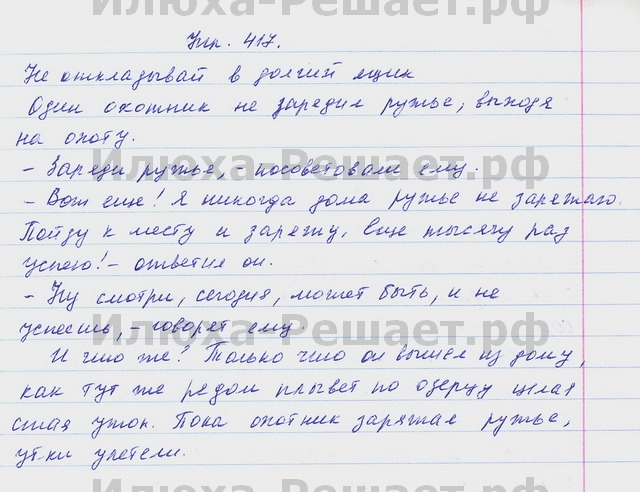 Илюха-Решает.рф
Упр. 417.
Не откладывай в долгий ящик
Один охотник не зарядил ружье, выходя
на охоту.
Илюха-Решает.рф
- Заряди ружье, - посоветовали ему.
- Вот еще! Я никогда дома ружье не заряжаю.
Пойду к месту и заряжу, еще тысячу раз
успею! - ответил он.
- Ну смотри, сегодня, может быть, и не
успеешь, - говорят ему.
Илюха-Решает.рф
И что же? Только что он вышел из дому,
как тут же рядом плывет по озерцу целая
стая уток. Пока охотник заряжал ружье,
утки улетели.
Илюха-Решает.рф